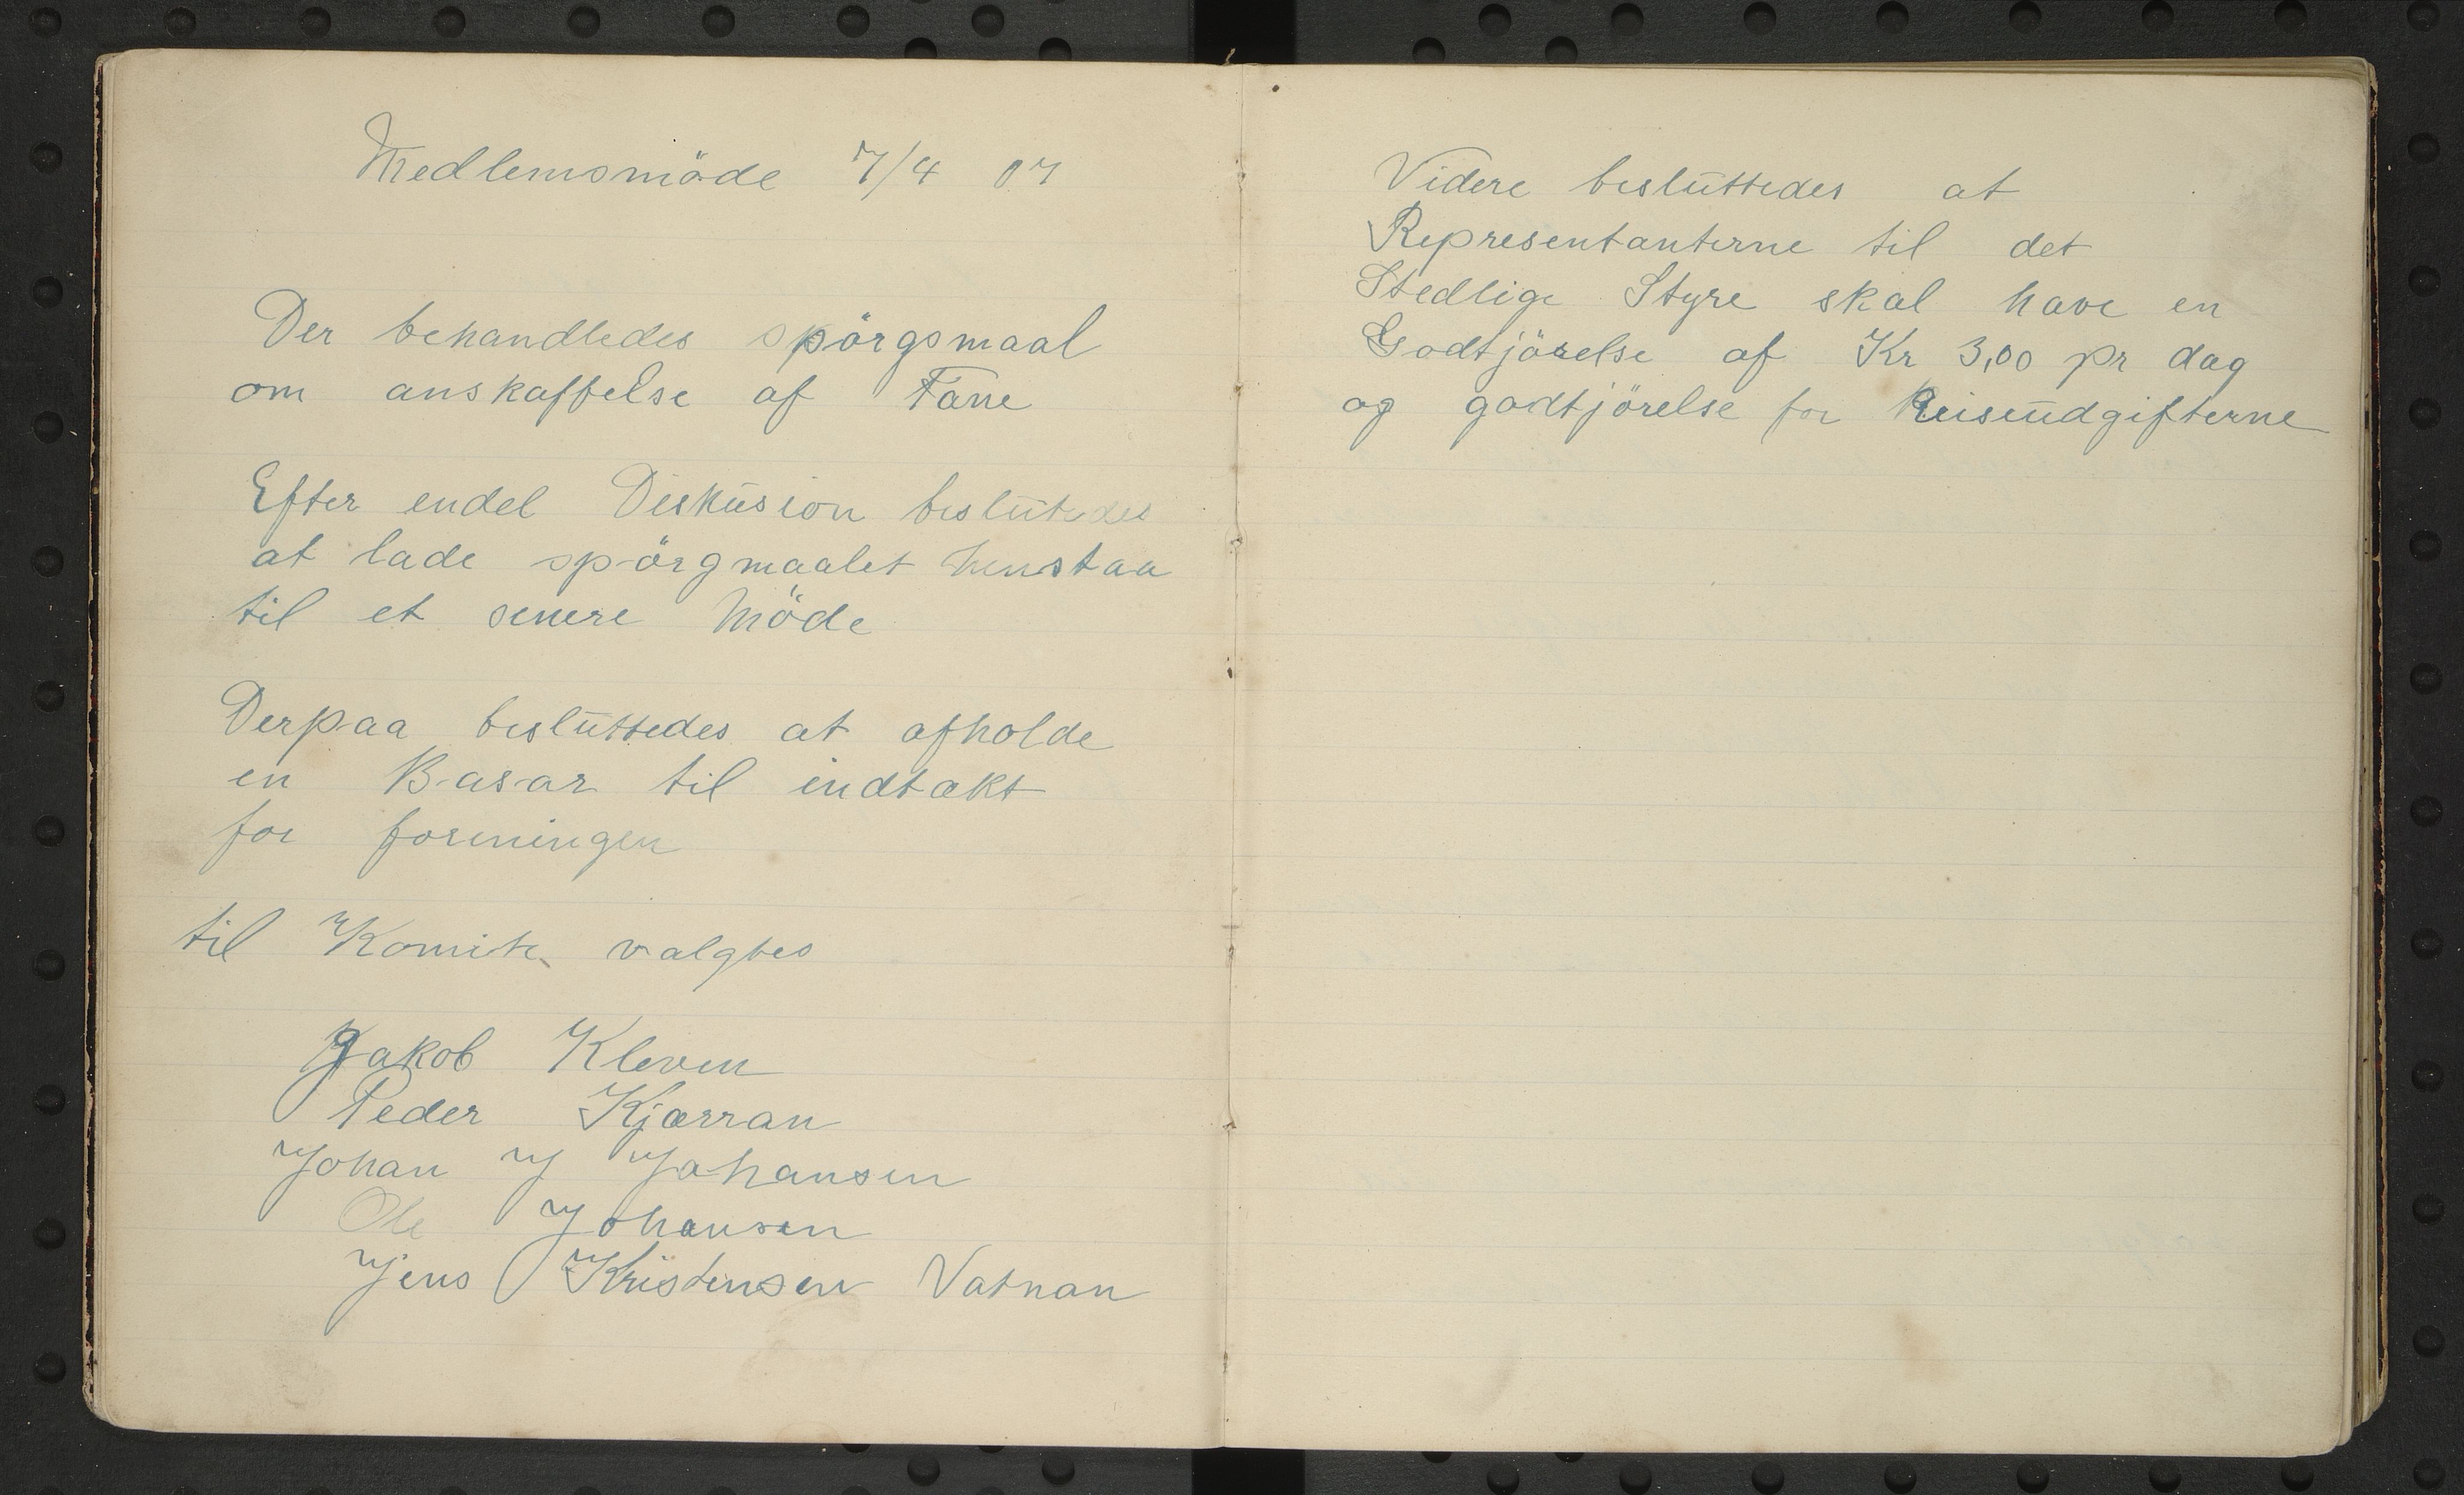 Medlemsmöde 7/4 07
Der behandledes spörgsmaal
om anskaffelse af Fane
Efter endel Diskusion beslutedes
at lade spörgmaalet henstaa
til et senere Möde
Derpaa besluttedes at afholde
en Basar til indtækt
for foreningen
til Komite valgtes
Jakob Kleven
Peder Kjærran
Johan J Johansen
Ole Johansen
Jens Kristensen Vatnan
Videre besluttedes at
Representanterne til det
Stedlige Styre skal have en
Godtjörelse af Kr 3,00 pr dag
og godtjörelse for Reiseudgifterne